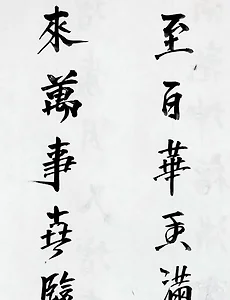 至百華香滿
來萬事喜臨